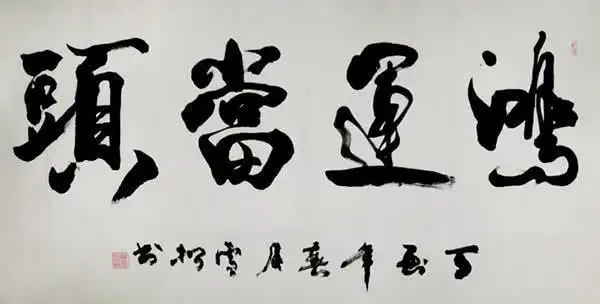 鴻運當頭
丁酉年春月書